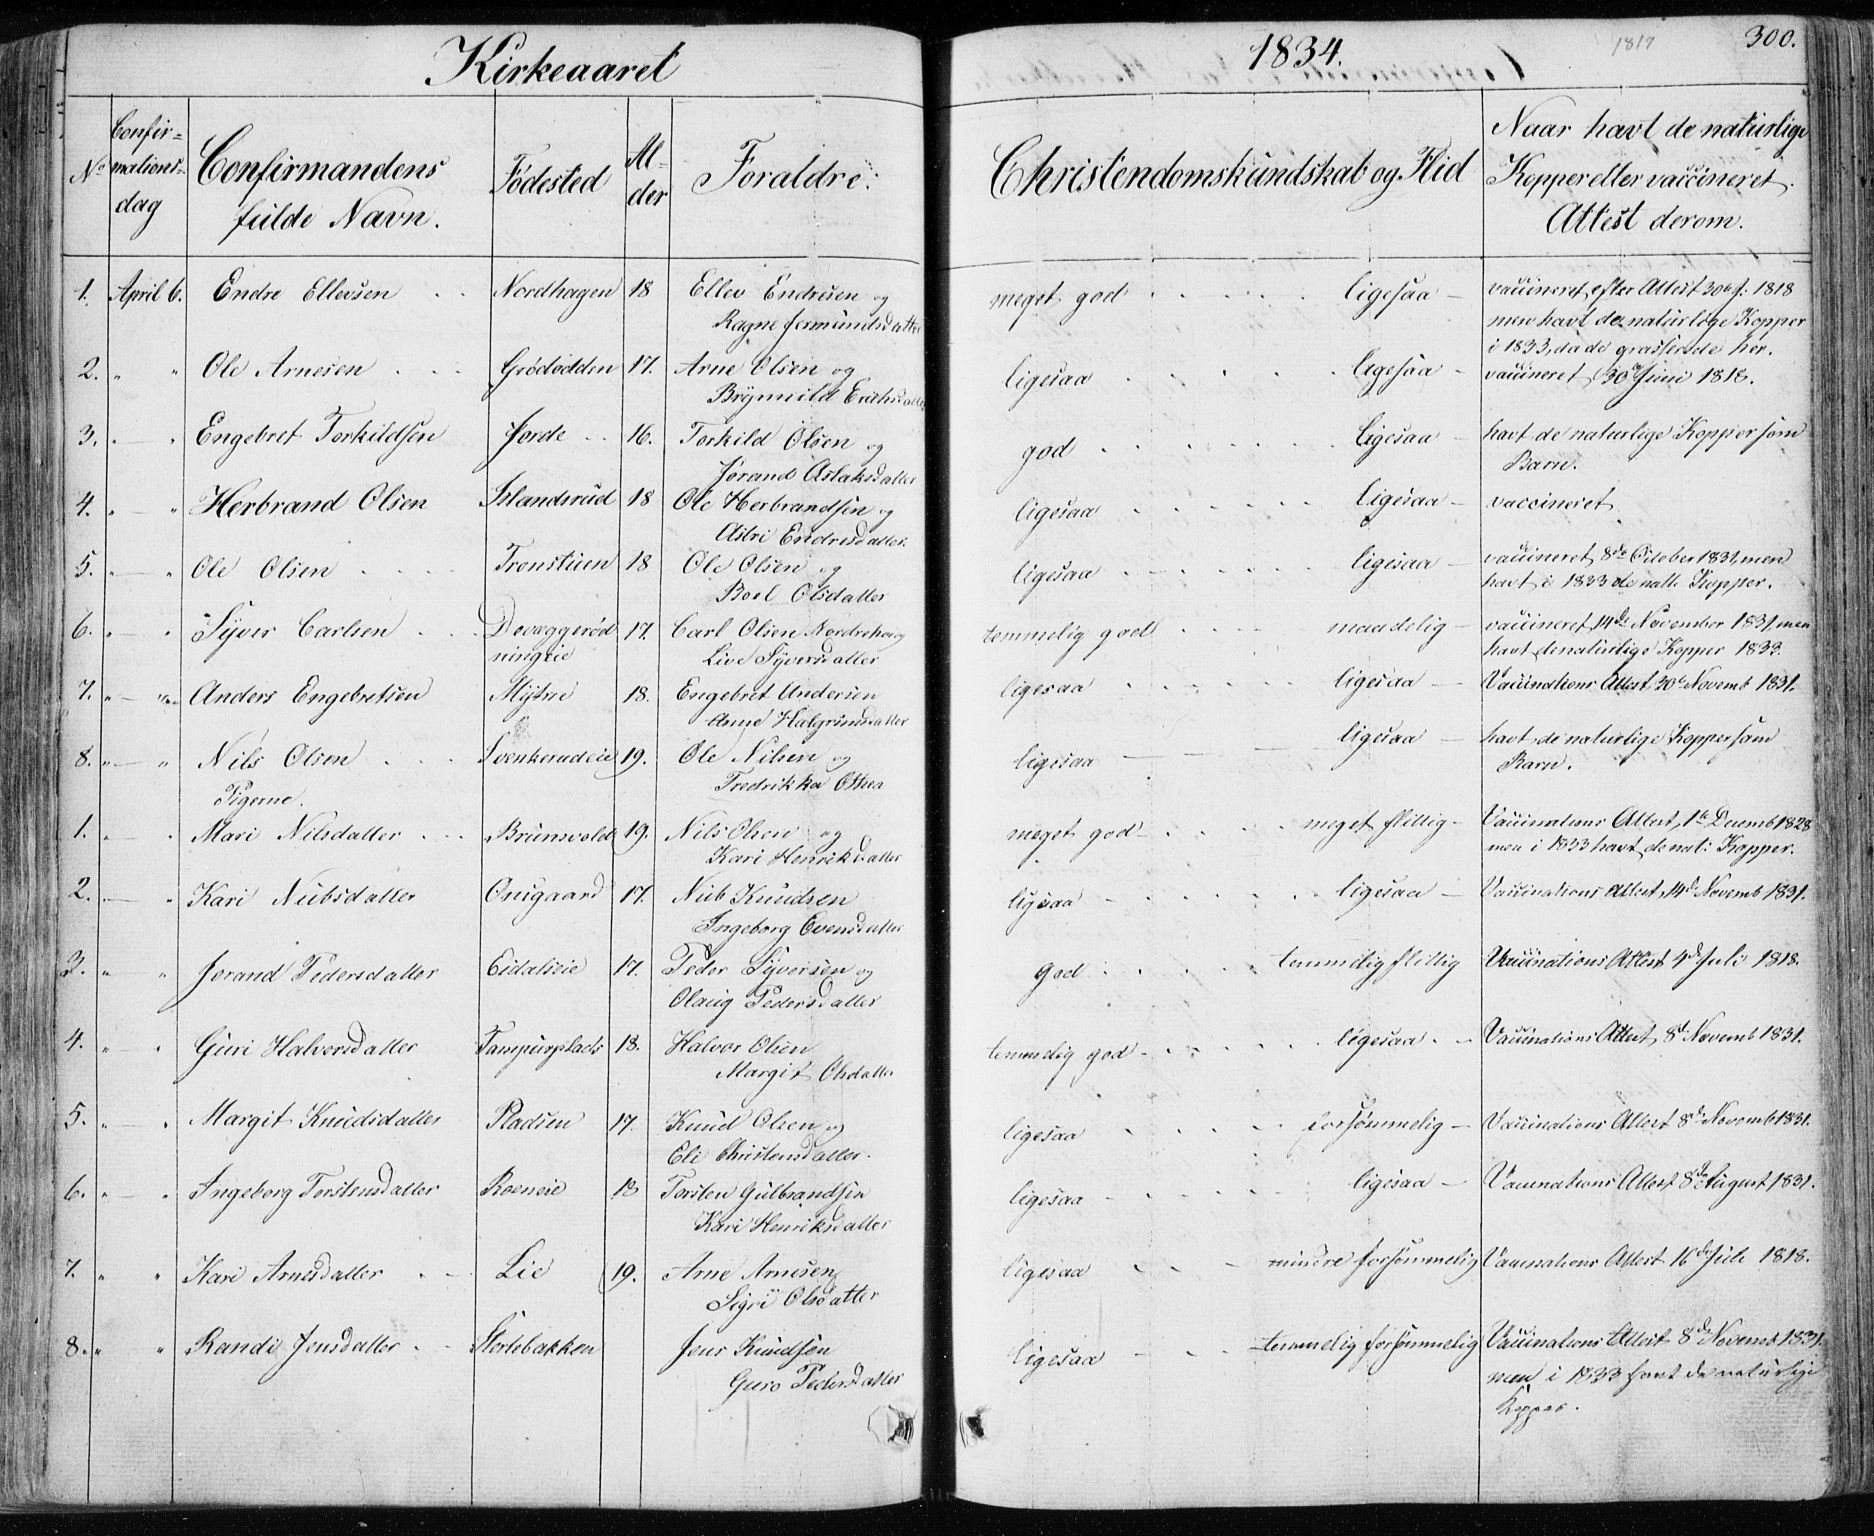 Kirkeaaret 1834. 1817 300.
No Confirmationsdag Confirmandens fulde Navn. Fødested Alder Forældre. Christendomskundskab og Flid Naar havt de naturlige Kopper eller vaccineret. Attest derom.
1. April 6. Endre Ellevsen Nordhagen 18 Ellev Endresen og meget god ligesaa vaccineret efter Attest 30te J. 1818
Ragne Jermundsdatter men havt de naturlige Kopper
i 1833, da de grasserede her.
2. " " Ole Arnesen Grødødden 17. Arne Olsen og ligesaa ligesaa vaccineret 30 Juni 1818.
Brynnild Erichsdatter
3. " " Engebret Torkildsen Jorde 16. Torkild Olsen og god ligesaa havt de naturlige Kopper som
Jørand Aslaksdatter Barn.
4. " " Herbrand Olsen Islandsrud 18 Ole Herbrandsen og ligesaa ligesaa vaccineret
Astri Endresdatter.
5. " " Ole Olsen Tronstuen 18 Ole Olsen og ligesaa ligesaa vaccineret 8de October 1831, men
Boel Olsdatter havt i 1833 de natl: Kopper.
6. " " Syver Carlsen 17. Carl Olsen Nordrehaug temmelig god maadelig vaccineret 14de November 1831, men
Live Syversdatter havt de naturlige Kopper 1833.
7. " " Anders Engebretsen Mytne 18. Engebret Andersen ligesaa ligesaa Vaccinations Attest 30te Novemb 1831.
Anne Halgrimsdatter
8. " " Nils Olsen Svenkerudeie 19. Ole Nilsen og ligesaa ligesaa havt de naturlige Kopper som
Fredrikka Othea Barn.
Pigerne.
1. " " Mari Nilsdatter Brunsvold 19. Nils Olsen og meget god meget flittig Vaccinations Attest, 1te Decemb 1828
Kari Henriksdatter men i 1833 havt de nat: Kopper.
2. " " Kari Nubsdatter Onsgaard 17. Nub Knudsen ligesaa ligesaa Vaccinations Attest, 14de Novemb 1831.
Ingeborg Evensdatter
3. " " Jorand Pedersdatter Eidalseie 17. Peder Syversen og god temmelig flittig Vaccinations Attest 4de Juli 1818.
Olaug Pedersdatter
4. " " Guri Halvorsdatter Tampurplads 18. Halvor Olsen temmelig god ligesaa Vaccinations Attest 8de Novemb 1831.
Margit Olsdatter
5. " " Margit Knudsdatter Pladsen 17. Knud Olsen og ligesaa forsømmelig Vaccinations Attest 8de Novemb 1831.
Eli Christensdatter.
6. " " Ingeborg Torstensdatter Roeneie 18 Torsten Gulbrandsen ligesaa ligesaa Vaccinations Attest 8de August 1831.
Kari Henriksdatter
7. " " Kari Arnesdatter Lie 19. Arne Arnesen ligesaa mindre forsømmelig Vaccinations Attest 16de Juli 1818.
Sigri Olsdatter
8. " " Randi Jensdatter Stortebakken Jens Knudsen ligesaa temmelig forsømmelig Vaccinations Attest 8de Novemb 1831.
Guro Pedersdatter men i 1833 havt de naturlige
Kopper.